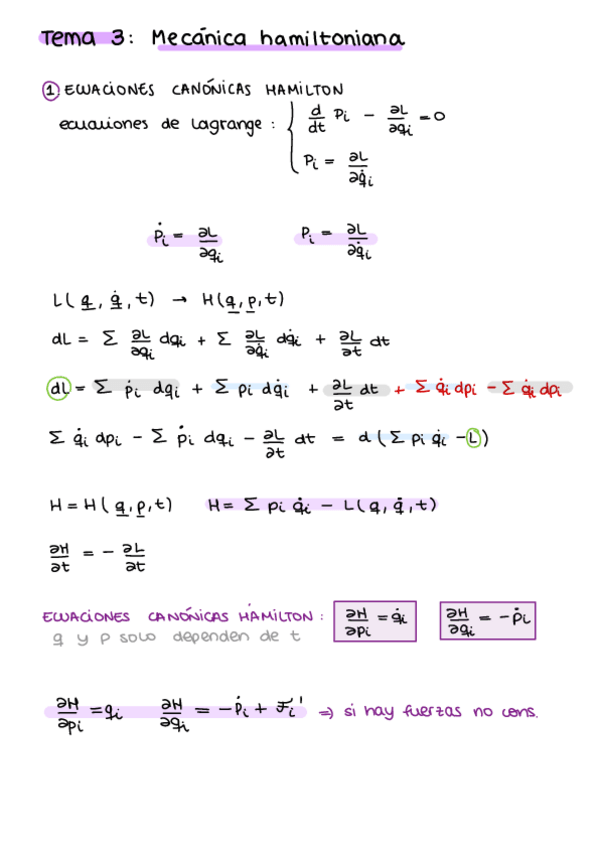 Tema 3: Mecánica hamiltoniana
① ECUACIONES CANÓNICAS HAMILTON
ecuaciones de Lagrange : { d/dt Pi − ∂L/∂qi = 0
Pi = ∂L/∂q̇i
Ṗi = ∂L/∂qi    Pi = ∂L/∂q̇i
L(q, q̇, t) → H(q, p, t)
dL = Σ ∂L/∂qi dqi + Σ ∂L/∂q̇i dq̇i + ∂L/∂t dt
dL = Σ ṗi dqi + Σ pi dq̇i + ∂L/∂t dt + Σ q̇i dpi − Σ q̇i dpi
Σ q̇i dpi − Σ ṗi dqi − ∂L/∂t dt = d(Σ pi q̇i − L)
H = H(q, p, t)    H = Σ pi q̇i − L(q, q̇, t)
∂H/∂t = − ∂L/∂t
ECUACIONES CANÓNICAS HAMILTON : ∂H/∂pi = q̇i    ∂H/∂qi = −ṗi
q y p solo dependen de t
∂H/∂pi = qi    ∂H/∂qi = −ṗi + Fi' ⇒ si hay fuerzas no cons.